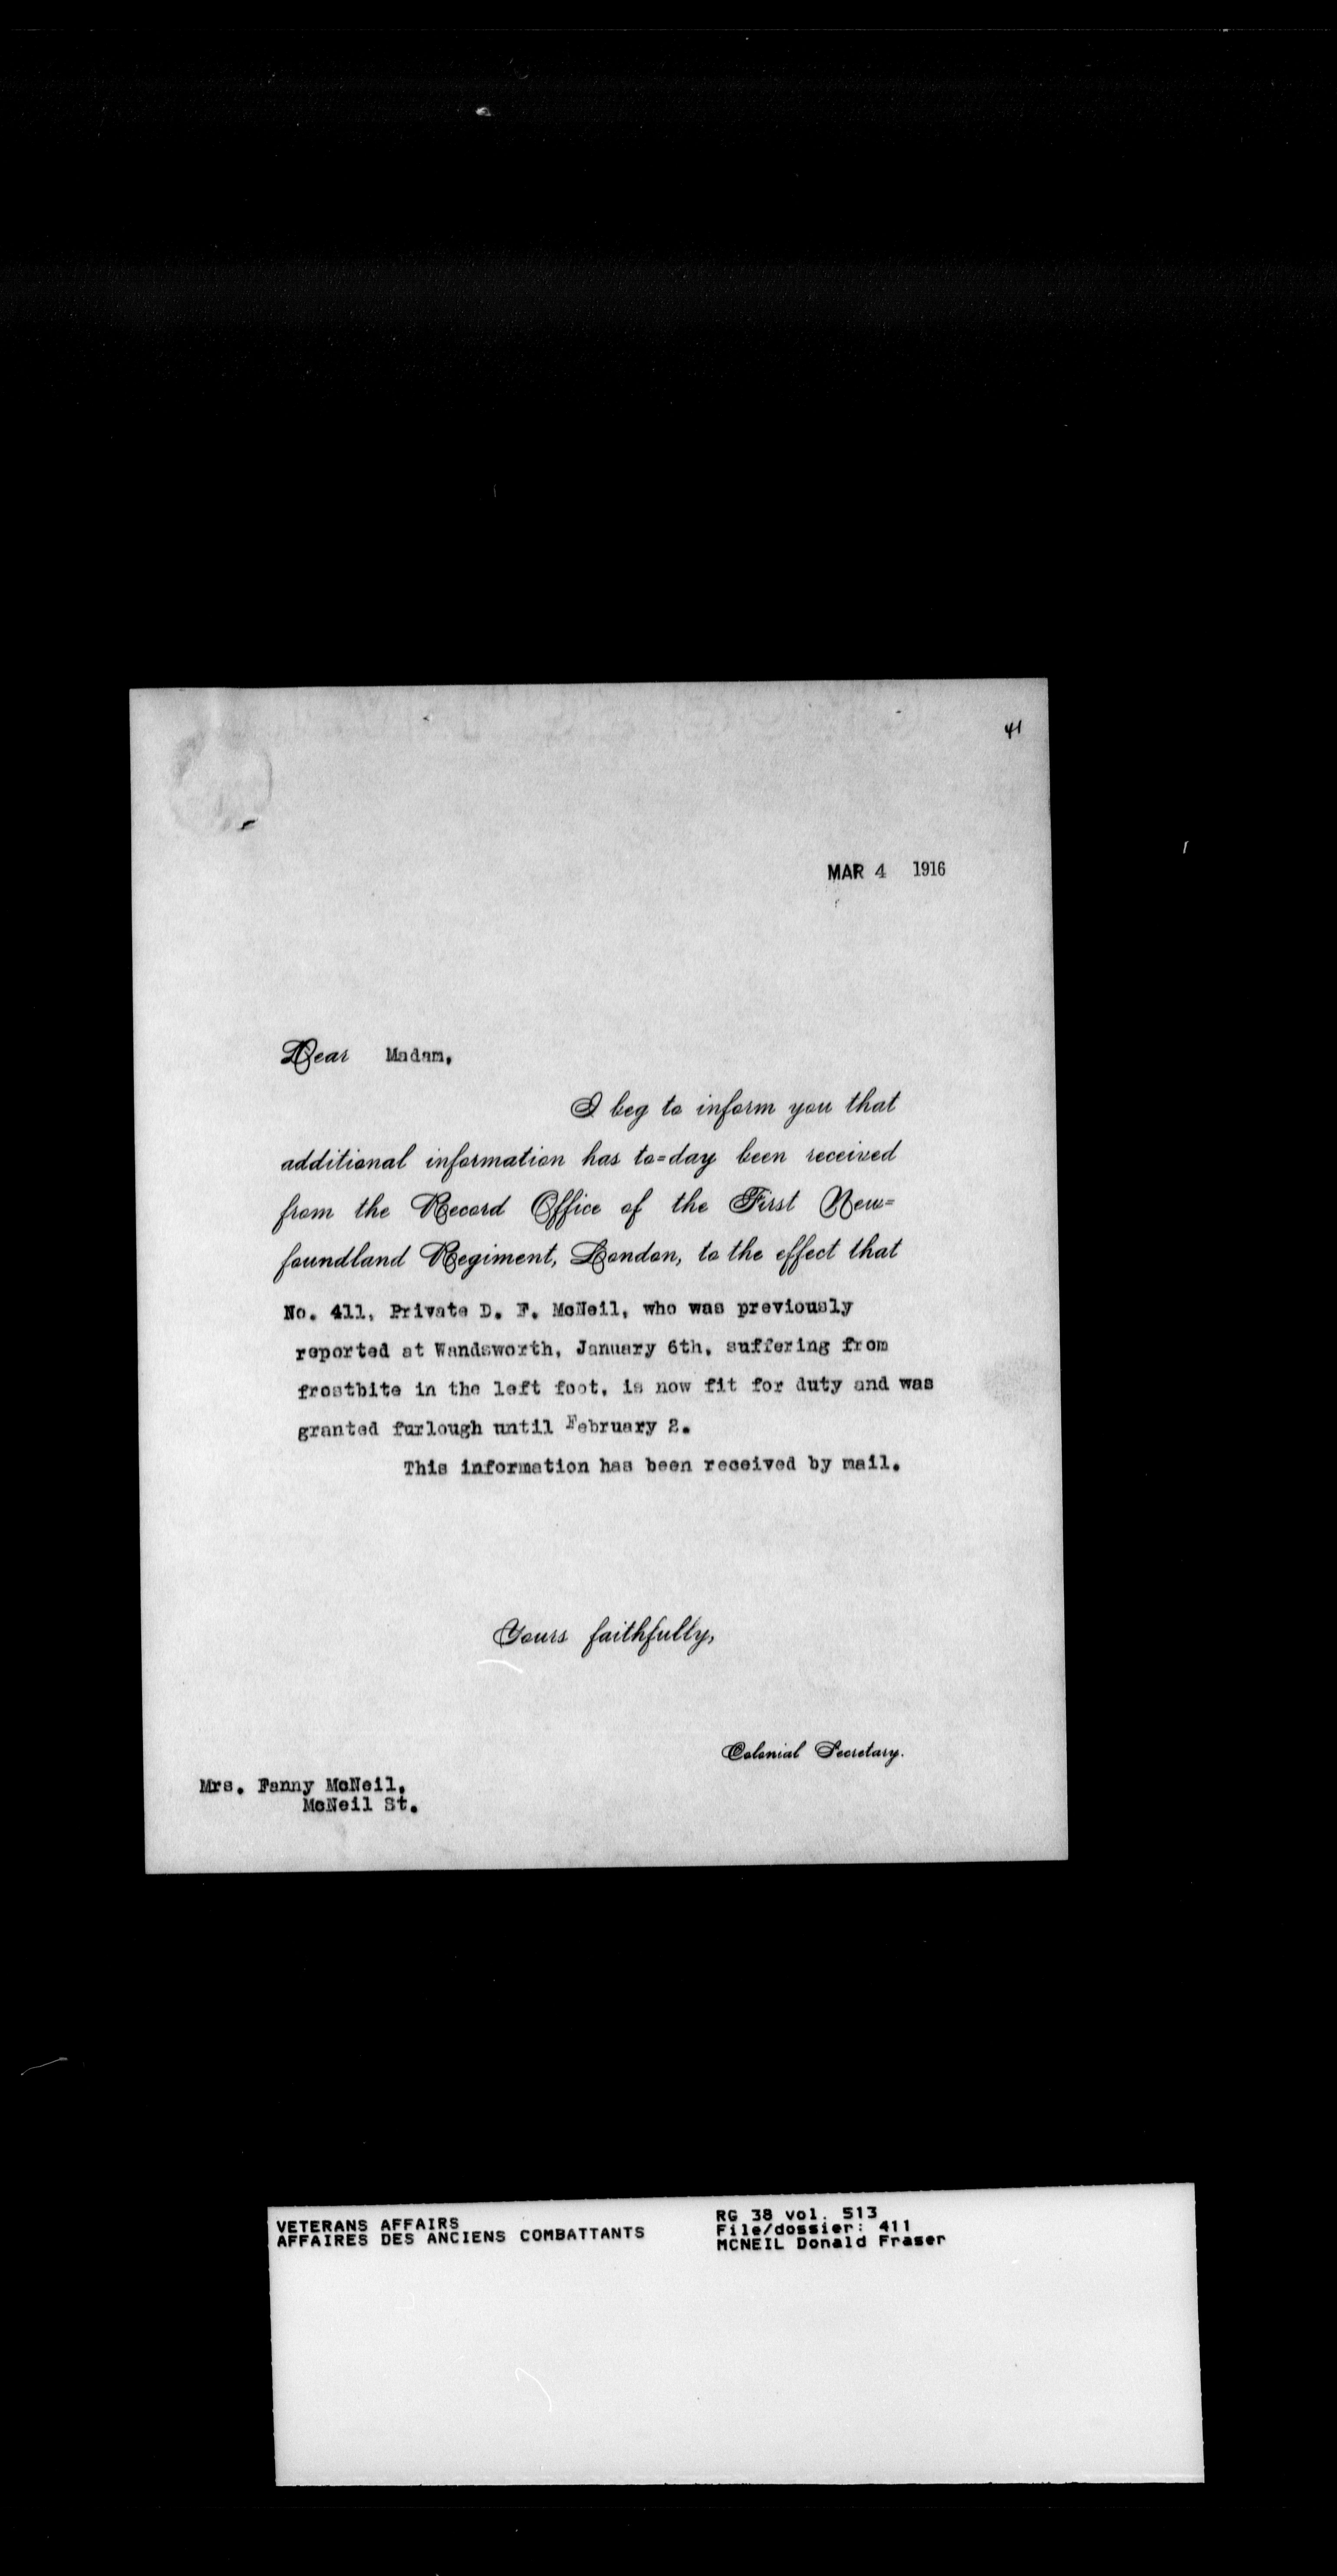 41
MAR 4 1916
Dear Madam,
I beg to inform you that
additional information has to=day been received
from the Record Office of the First New=
foundland Regiment, London, to the effect that
No. 411, Private D. F. McNeil, who was previously
reported at Wandsworth, January 6th, suffering from
frostbite in the left foot, is now fit for duty and was
granted furlough until February 2.
This information has been received by mail.
Yours faithfully,
Colonial Secretary.
Mrs. Fanny McNeil,
McNeil St.
VETERANS AFFAIRS
AFFAIRES DES ANCIENS COMBATTANTS
RG 38 vol. 513
File/dossier: 411
MCNEIL Donald Fraser